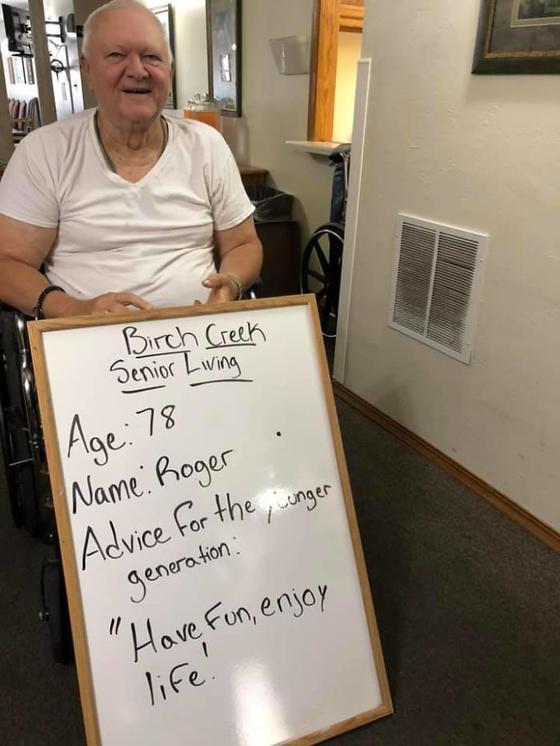 Birch Creek
Senior Living
Age: 78
Name: Roger
Advice for the younger
generation:
"Have Fun, enjoy
life!